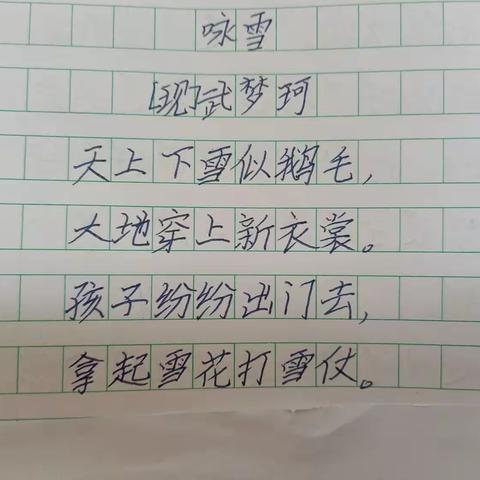 咏雪
[现]武梦珂
天上下雪似鹅毛，
大地穿上新衣裳。
孩子纷纷出门去，
拿起雪花打雪仗。